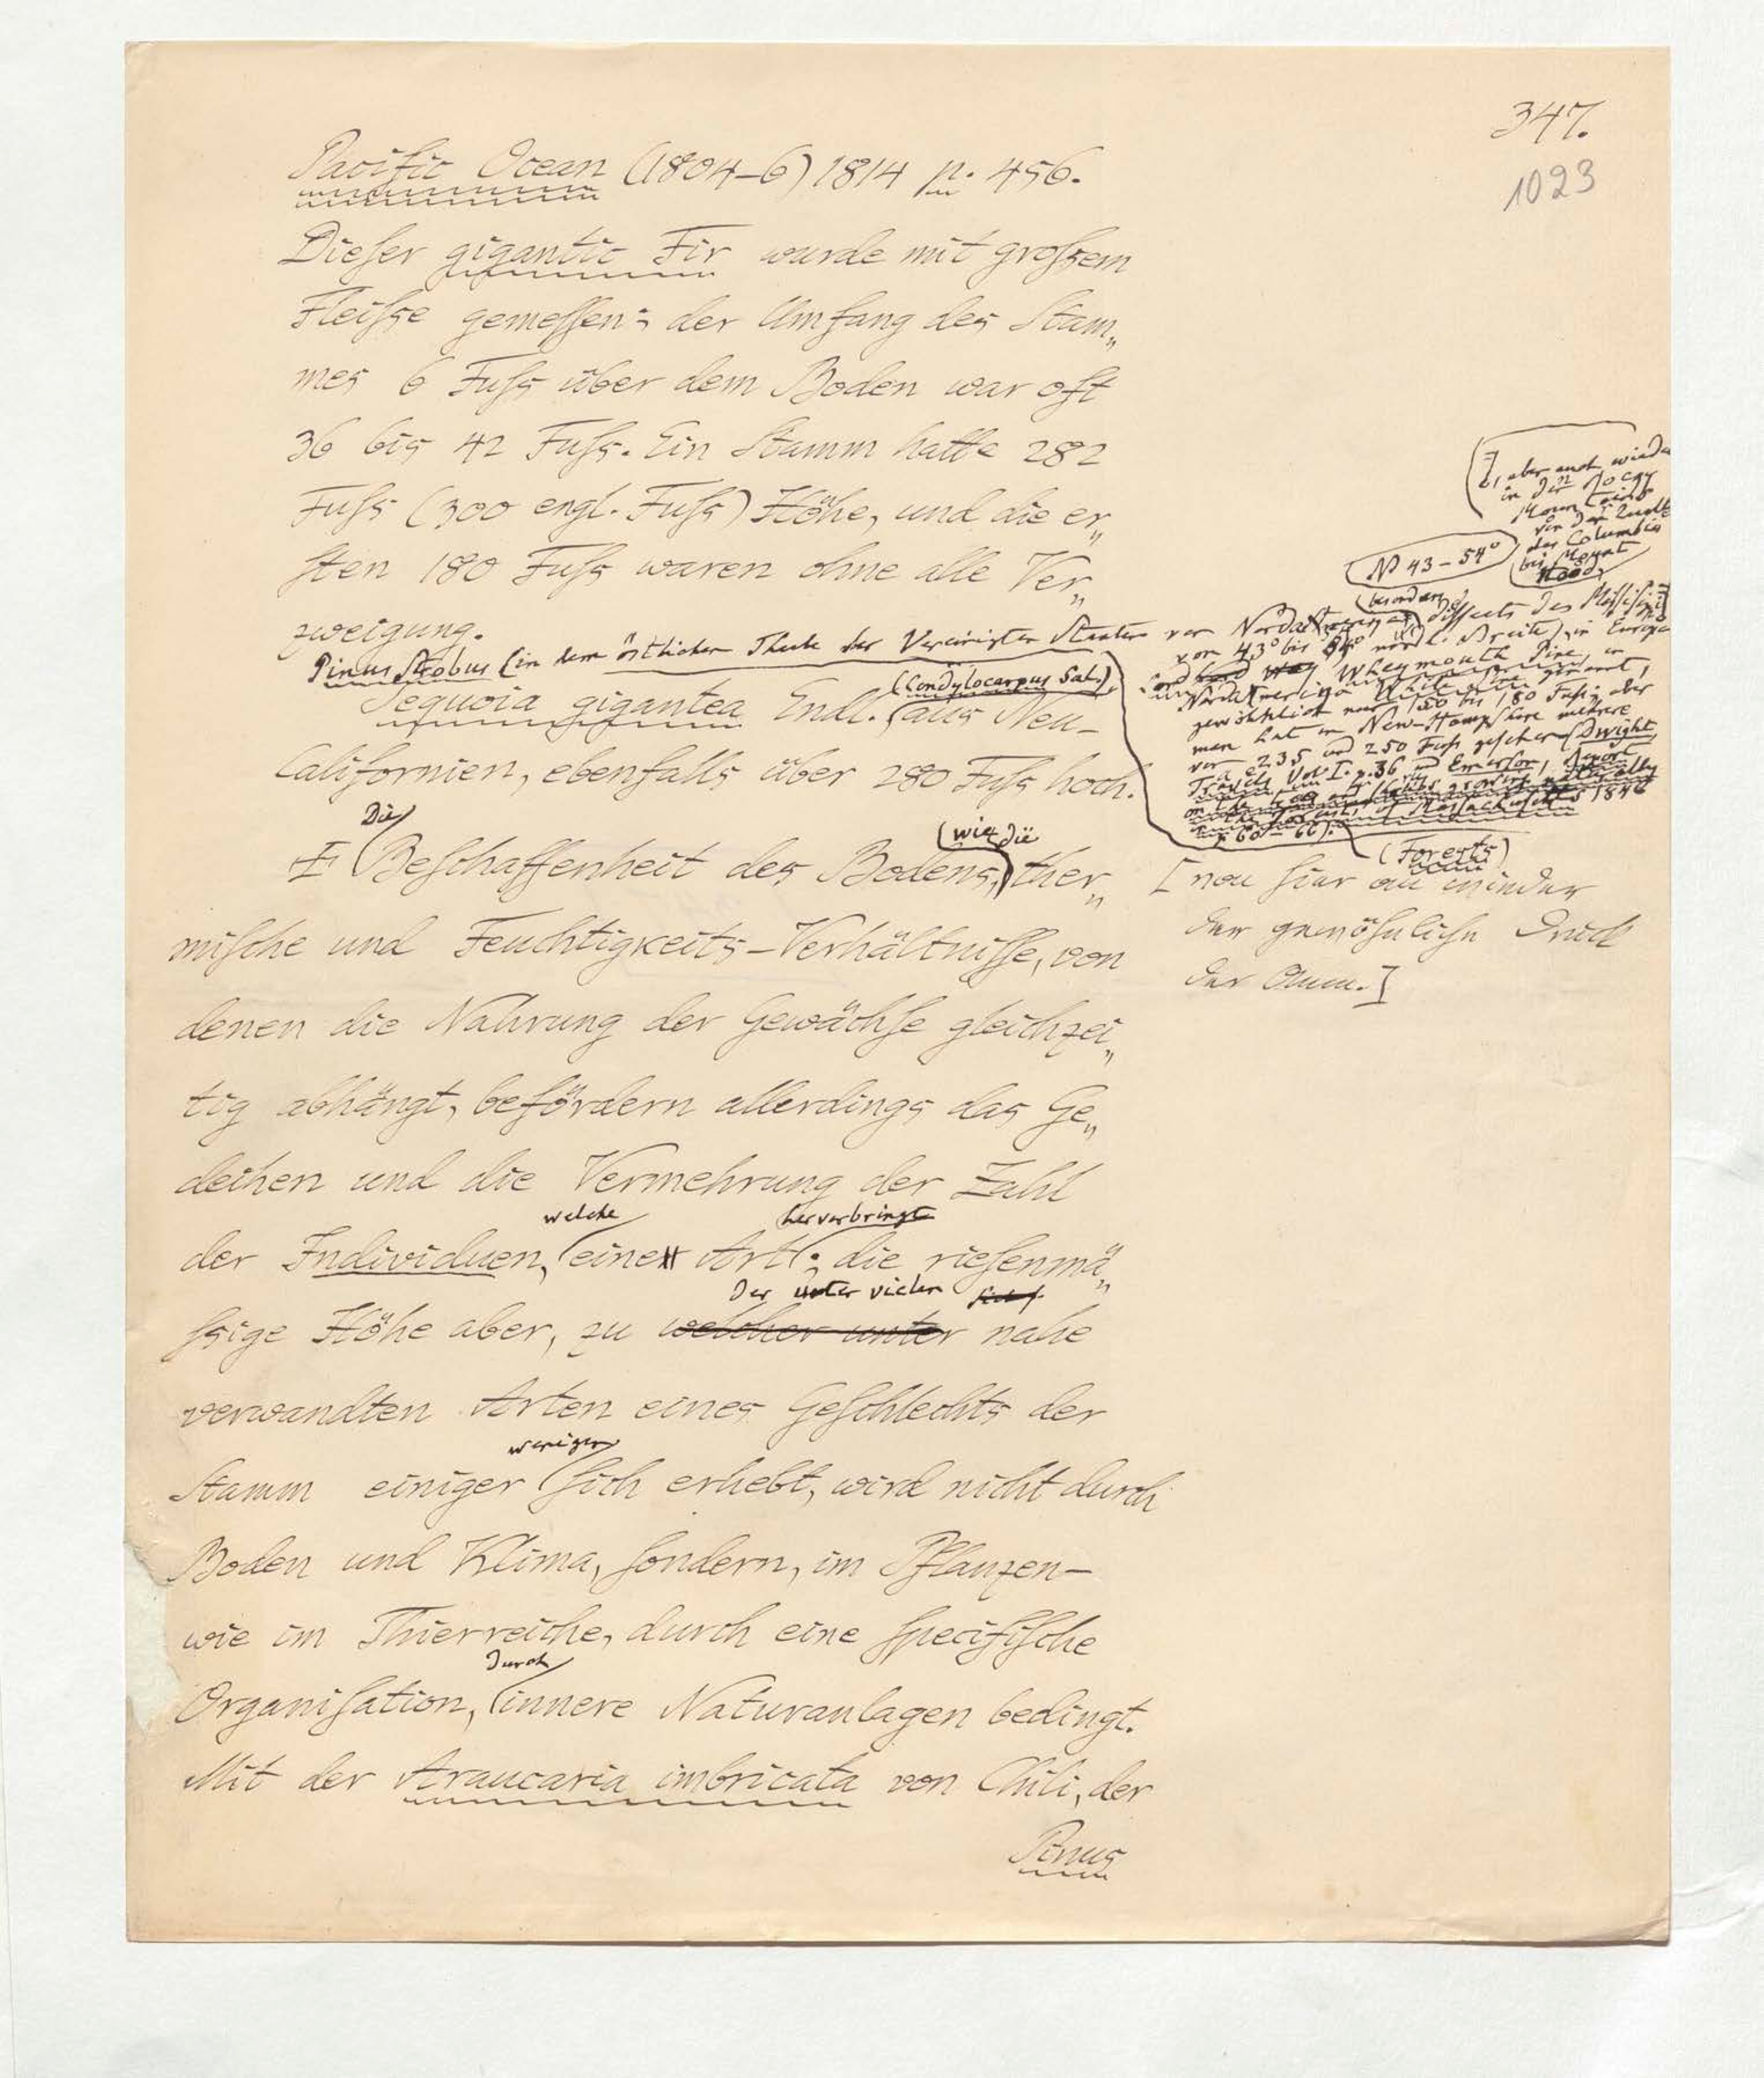 347.
1023
Pacific Ocean (1804–6) 1814 p. 456.
Dieser gigantic Fir wurde mit großsem
Fleiße gemessen: der Umfang des Stam„
mes 6 Fuß über dem Boden war oft
36 bis 42 Fuß. Ein Stamm hatte 282
Fuß (300 engl. Fuß) Höhe, und die er„
sten 180 Fuß waren ohne alle Ver„
zweigung.
Pinus Strobus (in dem östlichen Theile der Vereinigten Staaten von Nordamerika
besonders diesseits des Mississipi
, aber auch wieder
in den Rocky
Mountains
von der Quelle
des Columbia
bis Mount
Hood
N 43–54°
von 43° bis 54° nördl. Breite), in Europa
Lord Weymouth Pine, in
Nordamerika White Pine genannt,
gewöhnlich nur 150 bis 180 Fuß; aber
man hat in New-Hampshire mehrere
von 235 und 250 Fuß gesehen (Dwight,
Travels Vol. I. p. 36 und Emerson, Report
on the trees and shrubs growing naturally
in the forests of Massachusetts 1846
p. 60–66).
(Forests)
(Condylocarpus Sal.)
Sequoia gigantea Endl. aus Neu-
Californien, ebenfalls über 280 Fuß hoch.
Die wie die
Beschaffenheit des Bodens, ther„
[von hier an wieder
der gewöhnliche Druck
der Anm.]
mische und Feuchtigkeits-Verhältnisse, von
denen die Nahrung der Gewächse gleichzei„
tig abhängt, befördern allerdings das Ge„
deihen und die Vermehrung der Zahl
welche hervorbringt
der Individuen, eine Art; die riesenmä„
der unter vielen
ßige Höhe aber, zu welcher unter nahe
verwandten Arten eines Geschlechts der
weniger
Stamm einiger sich erhebt, wird nicht durch
Boden und Klima, sondern, im Pflanzen-
wie im Thierreiche, durch eine specifische
durch
Organisation, innere Naturanlagen bedingt.
Mit der Araucaria imbricata von Chili, der
Pinus